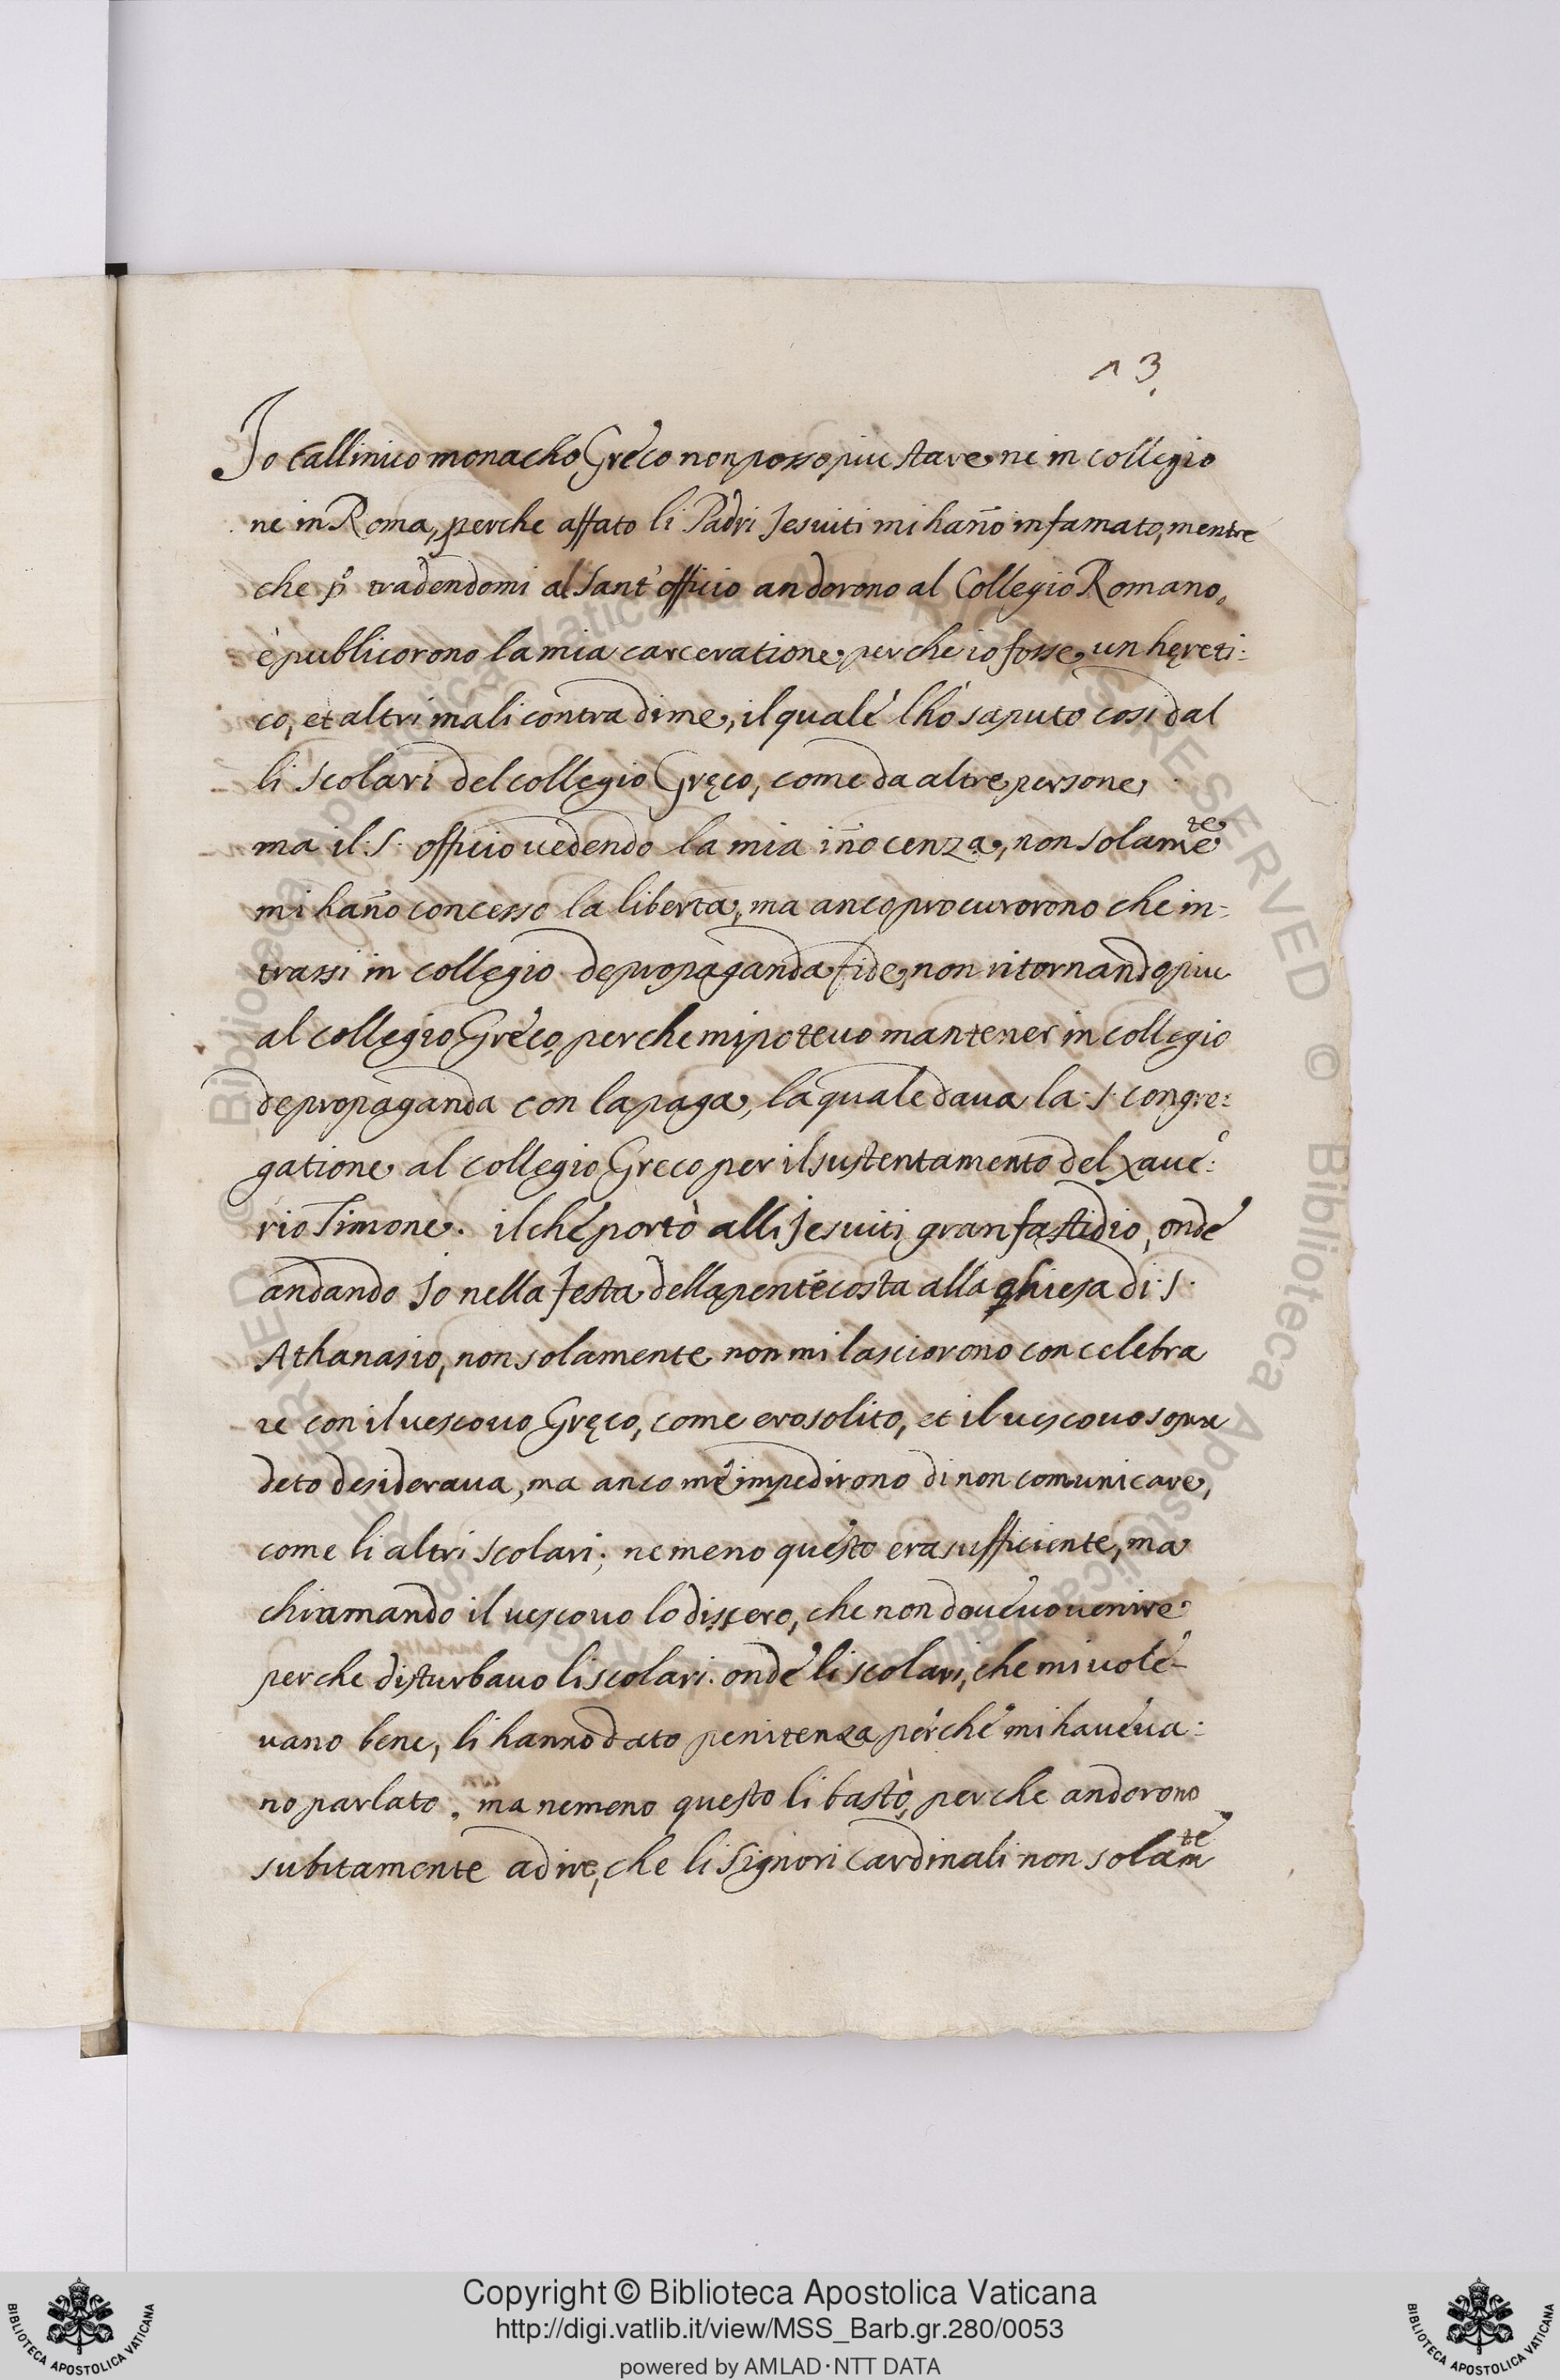 13.
Io Callinico monacho Greco non posso piu stare ne in collegio
ne in Roma, perche affato li Padri Jesuiti mi hanño infamato, mentre
che p̊ tradendomi al Sant'officio andorono al Collegio Romano,
è publicorono la mia carceratione perche io fosse un hęreti:
co, et altri mali contra di me, il qualè l'hò saputo cosi dal
li Scolari del collegio Gręco, come da altre persone,
ma il: S: officio uedendo la mia iñocenza, non solam̃e te
mi hañno concesso la liberta, ma anco procurorono che in=
trassi in collegio de propaganda fide, non ritornando piu
al collegio Grèco, perche mi poteuo mantener in collegio
de propaganda con la paga, la quale daua la: S: congre:
gatione al collegio Greco per il sustentamento del Xaue:
rio Simone. il chè portò alli Jesuiti gran fastidio, ondè
andando Io nella Festa della pentecosta alla ghiesa di: S:
Athanasio, non solamente non mi lasciorono con celebra
re con il uescouo Gręco, come ero solito, et il uescouo sopra
deto desideraua, ma anco mè impedirono di non comunicare,
come li altri scolari; ne meno questo era sufficiente, ma
chiamando il uescouo lo dissero, che non doueuo uenire
perche disturbauo li scolari. ondè li scolari, che mi uole-
uano bene, li hanno dato penitenza perchè mi haueua:
no parlato. ma nemeno questo li bastò, perche andorono
subitamente a dire, che li Signori Cardinali non solam te
Copyright © Biblioteca Apostolica Vaticana
http://digi.vatlib.it/view/MSS_Barb.gr.280/0053
powered by AMLAD·NTT DATA
BIBLIOTECA APOSTOLICA VATICANA
BIBLIOTECA APOSTOLICA VATICANA